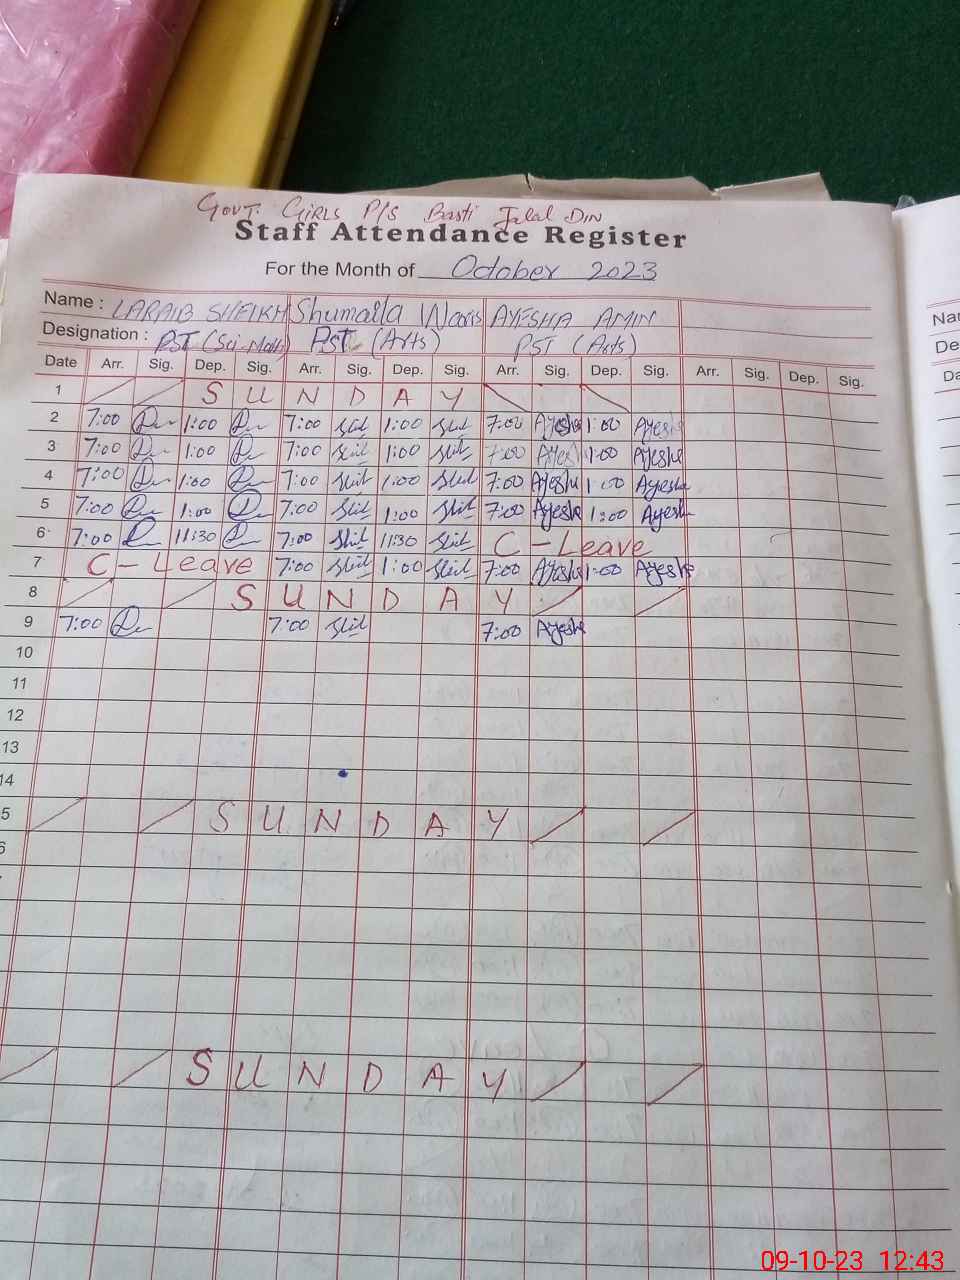 GOVT. GIRLS P/S Basti Jalal DIN
Staff Attendance Register
For the Month of October 2023
Name : LARAIB SHEIKH Shumaila Waris AYESHA AMIN
Designation : PST (Sci-Math) PST (Arts) PST (Arts)
Date Arr. Sig. Dep. Sig. Arr. Sig. Dep. Sig. Arr. Sig. Dep. Sig. Arr. Sig. Dep. Sig.
1 SUNDAY
2 7:00 1:00 7:00 1:00 7:00 Ayesha 1:00 Ayesha
3 7:00 1:00 7:00 1:00 7:00 Ayesha 1:00 Ayesha
4 7:00 1:00 7:00 1:00 7:00 Ayesha 1:00 Ayesha
5 7:00 1:00 7:00 1:00 7:00 Ayesha 1:00 Ayesha
6 7:00 11:30 7:00 11:30 C-Leave
7 C-Leave 7:00 1:00 7:00 Ayesha 1:00 Ayesha
8 SUNDAY
9 7:00 7:00 7:00 Ayesha
10
11
12
13
14
5 SUNDAY
6
SUNDAY
Nar
De
Da
09-10-23 12:43